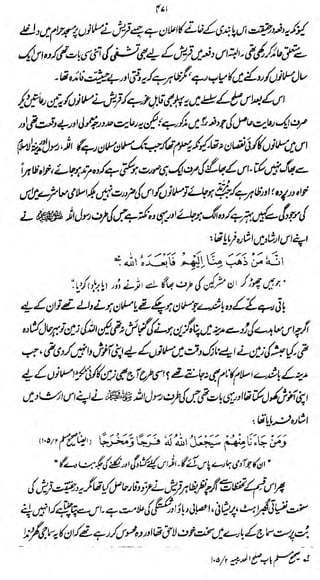 ۴۷۱
کیونکہ یہ دفعہ درحقیقت اس پابندی کے خاتمے کا اعلان ہے جسے قریش نے مسلمانوں پر مسجد حرام میں داخلے
سے متعلق عائد کر رکھی تھی۔ البتہ اس دفعہ میں قریش کے لیے بھی تشفی کی اتنی سی بات تھی کہ وہ اس ایک
سال مسلمانوں کو روکنے میں کامیاب رہے، مگر ظاہر ہے کہ یہ وقتی اور بے حیثیت فائدہ تھا۔
اس کے بعد اس صلح کے سلسلے میں یہ پہلو بھی قابل غور ہے کہ قریش نے مسلمانوں کو تین رعایتیں دیکر
صرف ایک رعایت حاصل کی جو دفعہ ۴ میں مذکور ہے، لیکن یہ رعایت حد درجہ معمولی اور بے وقعت تھی اور
اس میں مسلمانوں کا کوئی نقصان نہ تھا کیونکہ یہ معلوم تھا کہ جب تک مسلمان مسلمان رہے گا اللہ، رسول اور مدینۃ الاسلام
سے بھاگ نہیں سکتا۔ اس کے بھاگنے کی صرف ایک ہی صورت ہو سکتی ہے کہ وہ مرتد ہو جائے، خواہ ظاہراً
خواہ درپردہ؛ اور ظاہر ہے کہ جب مرتد ہو جائے تو مسلمانوں کو اس کی ضرورت نہیں بلکہ اسلامی معاشرے میں اس
کی موجودگی سے کہیں بہتر ہے کہ وہ الگ ہو جائے اور یہی وہ نکتہ ہے جس کی طرف رسول اللہ ﷺ نے
اپنے اس ارشاد میں اشارہ فرمایا تھا:
اِنَّهُ مَنْ ذَهَبَ مِنَّا اِلَيْهِمْ فَاَبْعَدَهُ اللّٰه
”جو ہمیں چھوڑ کر ان مشرکین کی طرف بھاگا اسے اللہ نے دور (یا برباد) کر دیا۔“
باقی رہے مکے کے وہ باشندے جو مسلمان ہو چکے تھے یا مسلمان ہونے والے تھے تو ان کے لیے
اگرچہ اس معاہدے کی رو سے مدینہ میں پناہ گزین ہونے کی گنجائش نہ تھی لیکن اللہ کی زمین تو بہر حال کشادہ
تھی۔ کیا حبشہ کی زمین نے ایسے نازک وقت میں مسلمانوں کے لیے اپنی آغوش وا نہیں کر دی تھی، جب
مدینہ کے باشندے اسلام کا نام بھی نہ جانتے تھے؟ اسی طرح آج بھی زمین کا کوئی ٹکڑا مسلمانوں کے لیے
اپنی آغوش کھول سکتا تھا اور یہی بات تھی جس کی طرف رسول اللہ ﷺ نے اپنے اس ارشاد میں
اشارہ فرمایا تھا:
وَمَنْ جَاءَنَا مِنْهُمْ سَيَجْعَلُ اللّٰهُ لَهُ فَرَجًا وَّمَخْرَجًا (ایضاً صحیح مسلم ۱۰۵/۲)
”ان کا جو آدمی ہمارے پاس آئے گا۔ اللہ اس کیلئے کشادگی اور نکلنے کی جگہ بنا دے گا“
پھر اس قسم کے تحفظات سے اگرچہ نظر بظاہر قریش نے عز و وقار حاصل کیا تھا مگر یہ درحقیقت قریش کی
سخت نفسیاتی گھبراہٹ، پریشانی، اعصابی دباؤ اور شکستگی کی علامت ہے۔ اس سے پتا چلتا ہے کہ انہیں اپنے
بت پرست سماج کے بارے میں سخت خوف لاحق تھا اور وہ محسوس کر رہے تھے کہ ان کا یہ سماجی گھروندا
صحیح مسلم باب صلح الحدیبیہ ۱۰۵/۲